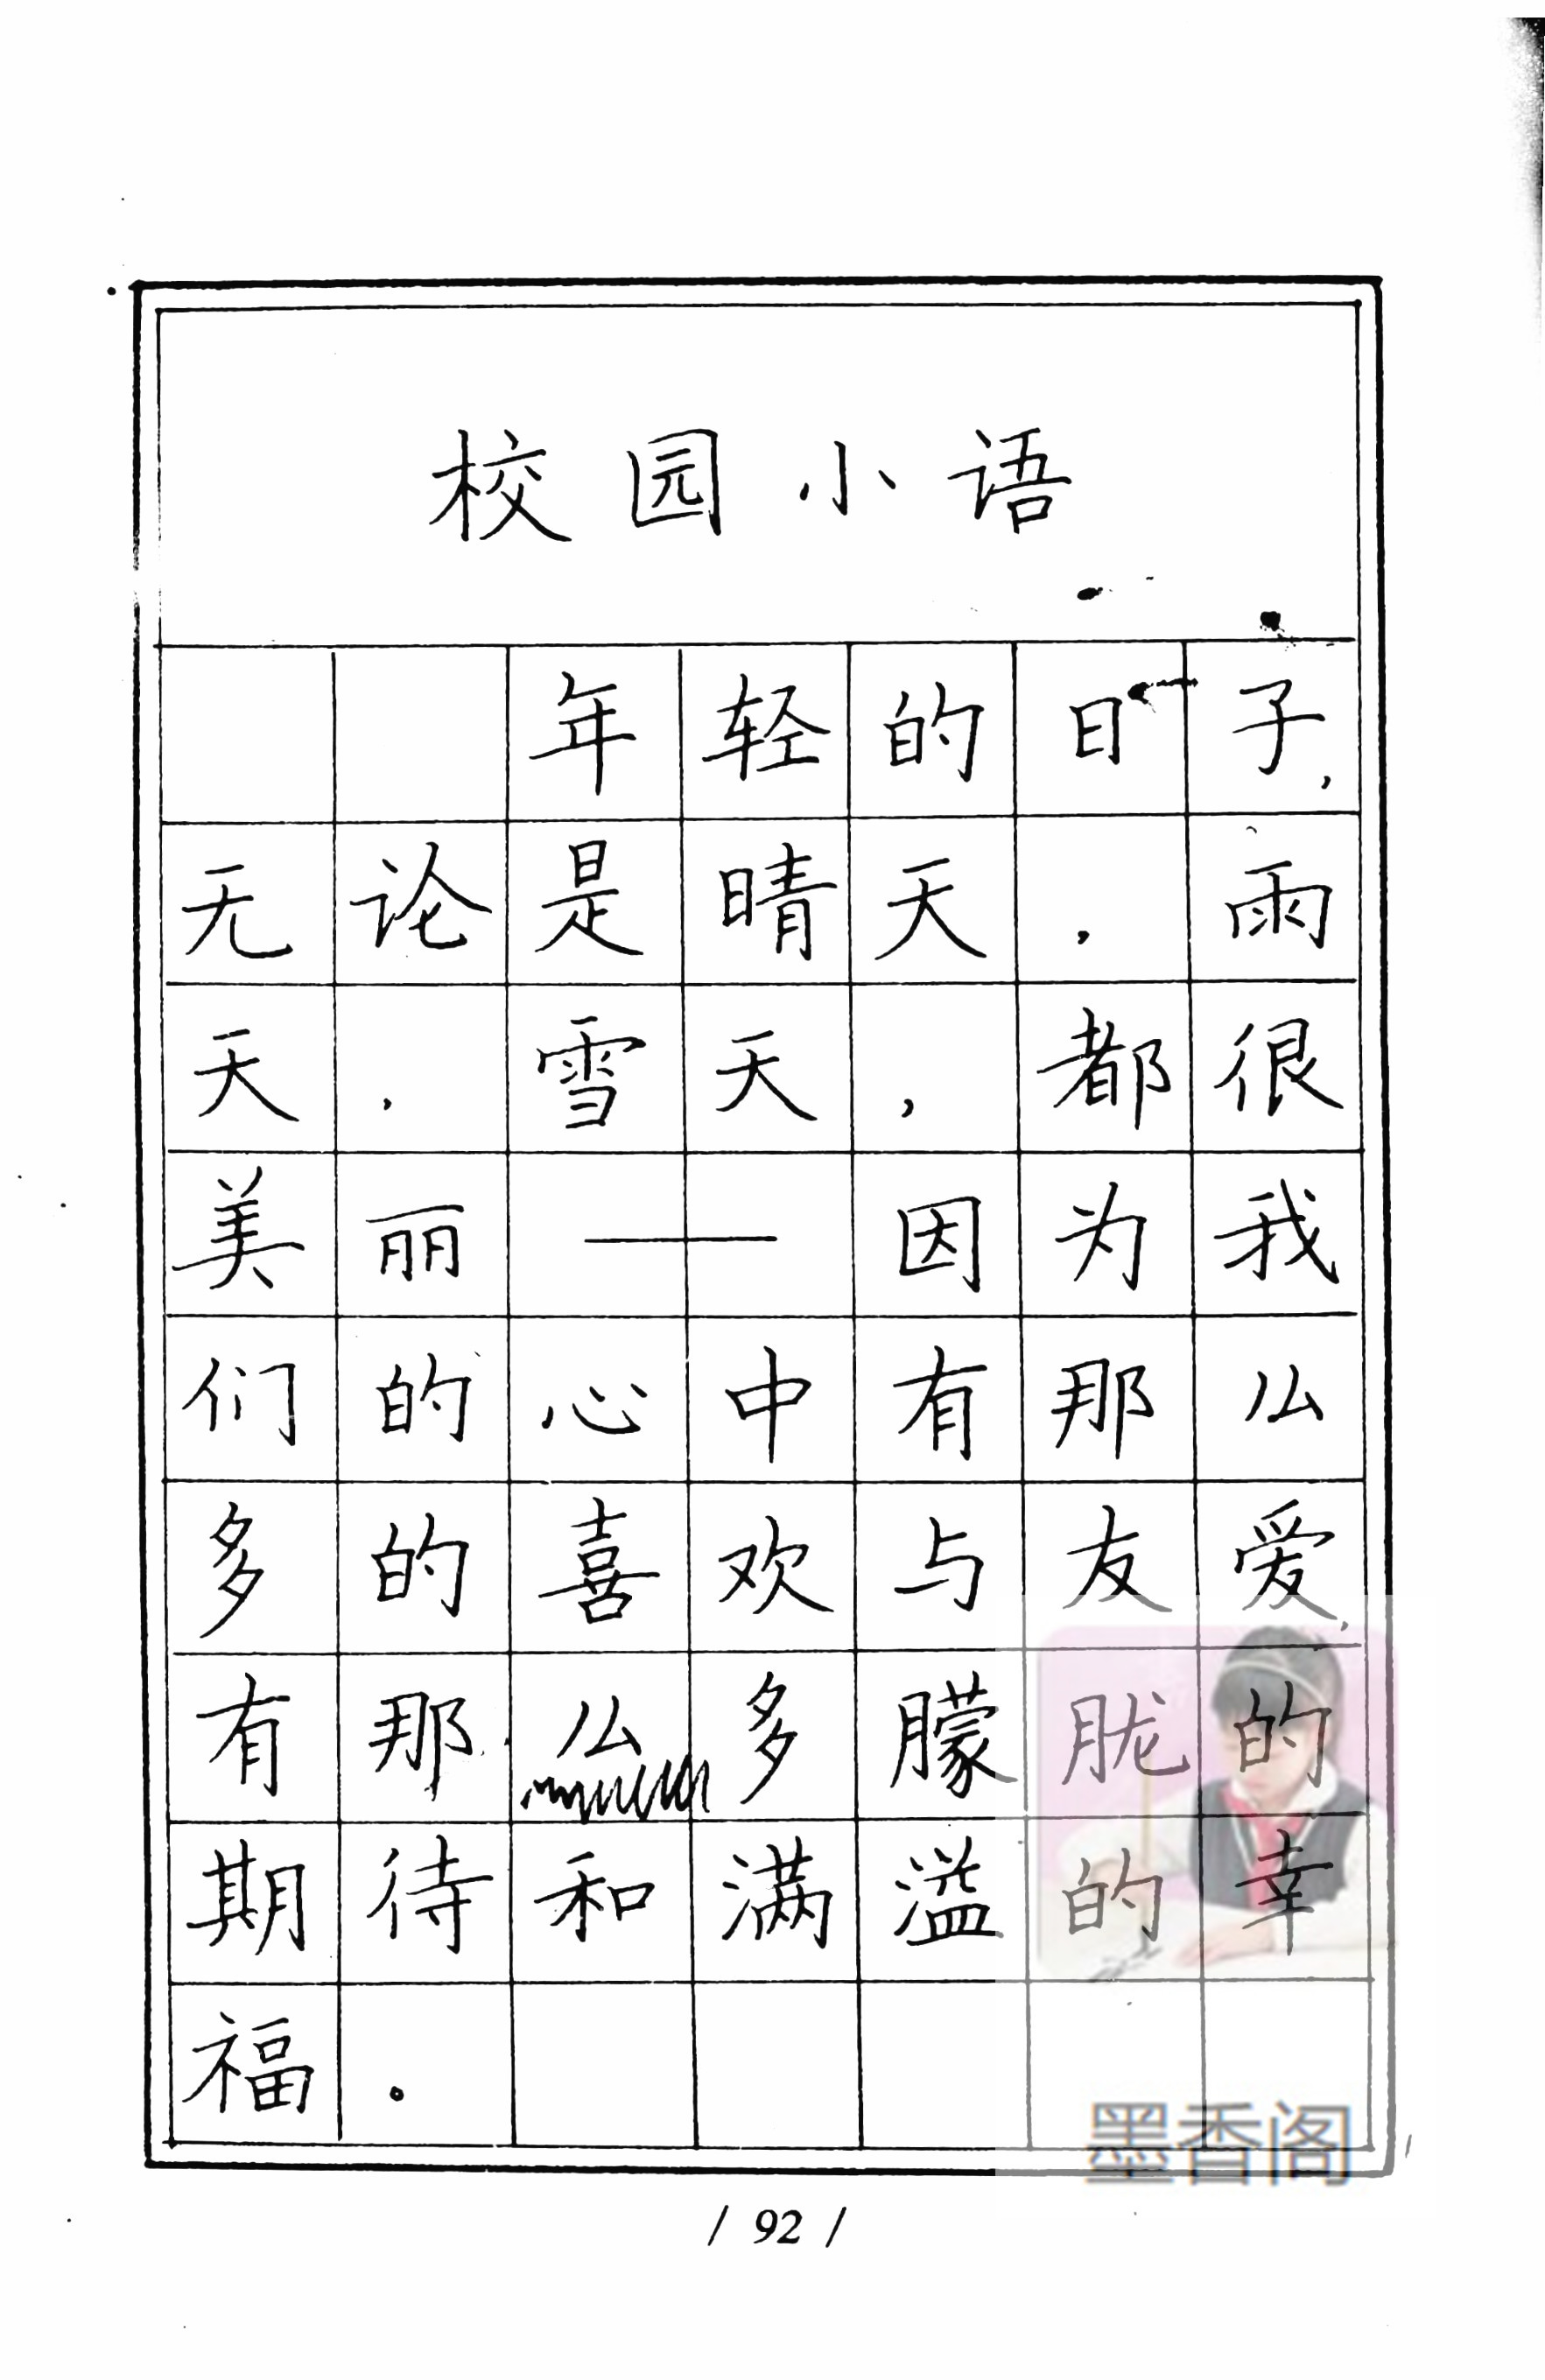 校园小语
年轻的日子,
无论是晴天,雨
天,雪天,都很
美丽——因为我
们的心中有那么
多的喜欢与友爱,
有那么多朦胧的
期待和满溢的幸
福。
墨香阁
/ 92 /